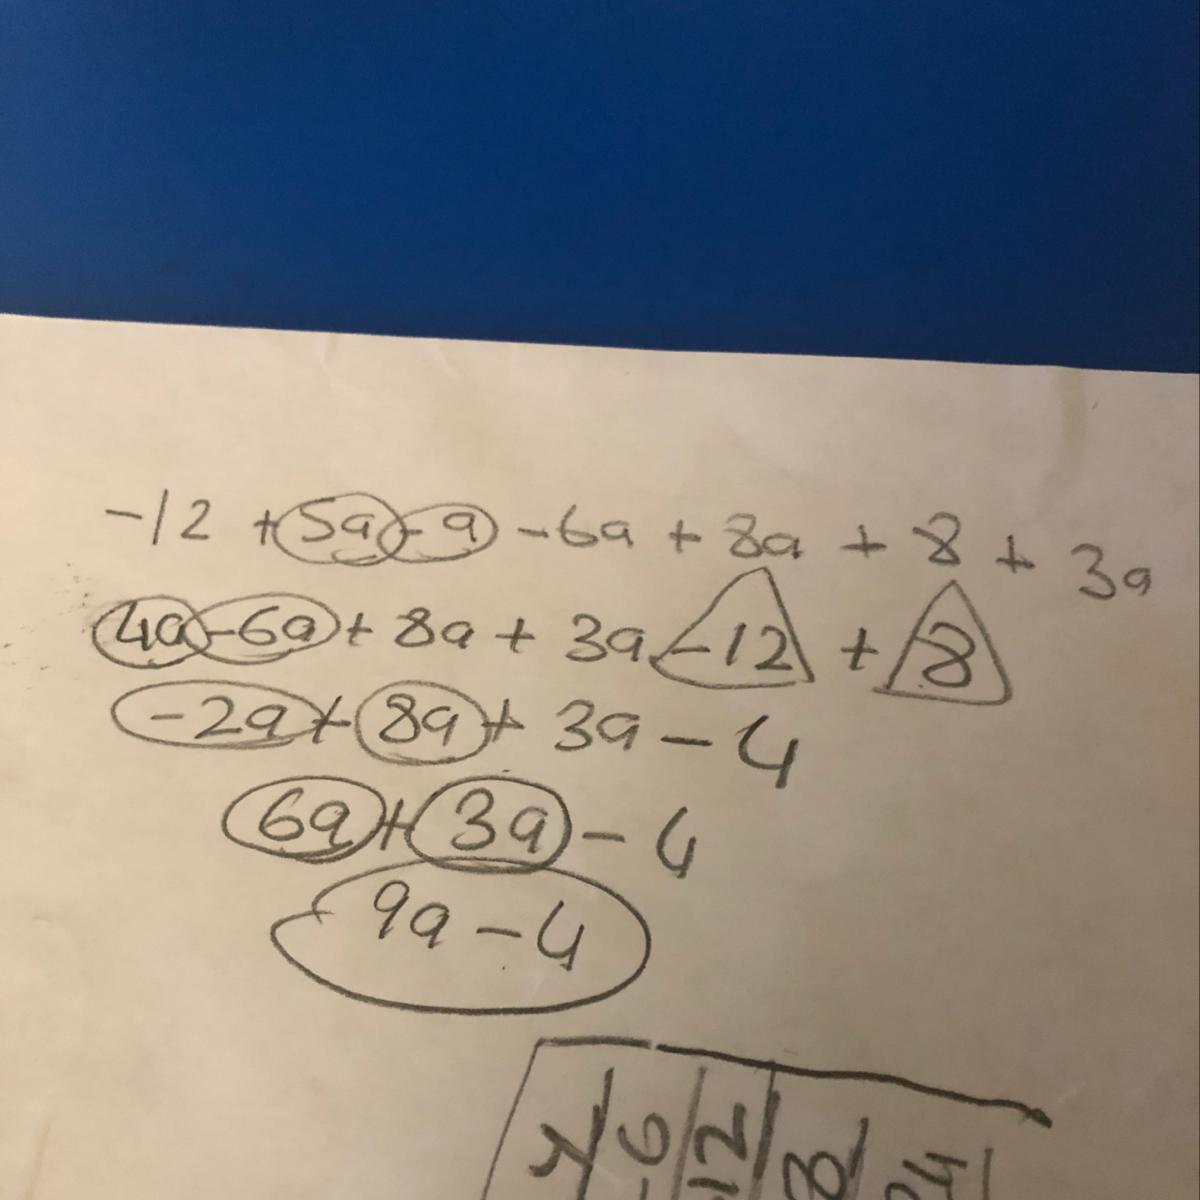 -12 + 5a - a - 6a + 8a + 8 + 3a
4a - 6a + 8a + 3a - 12 + 8
-2a + 8a + 3a - 4
6a + 3a - 4
9a - 4